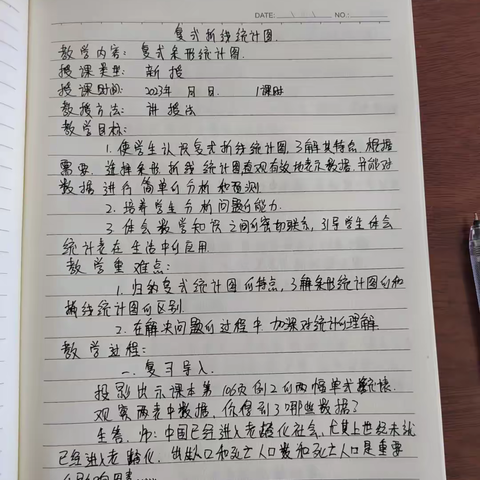 DATE: NO:
复式折线统计图.
教学内容: 复式条形统计图.
授课类型: 新授
授课时间: 2023年 月 日. 1课时
教授方法: 讲授法
教学目标:
1. 使学生认识复式折线统计图, 了解其特点, 根据
需要, 选择条形 折线 统计图直观有效地表示数据, 并能对
数据进行简单的分析和预测
2. 培养学生分析问题的能力.
3. 体会数学知识之间的密切联系, 引导学生体会
统计表在生活中的应用.
教学重难点:
1. 归纳复式统计图的特点, 了解条形统计图的和
折线统计图的区别.
2. 在解决问题的过程中加深对统计的理解.
教学过程:
一. 复习导入.
投影出示课本第106页例2的两幅单式统计表.
观察两表中数据, 你得到了哪些数据?
生答, 师: 中国已经进入老龄化社会, 尤其上世纪末就
已经进入老龄化, 出生人口和死亡人口数和死亡人口是重要
的影响因素